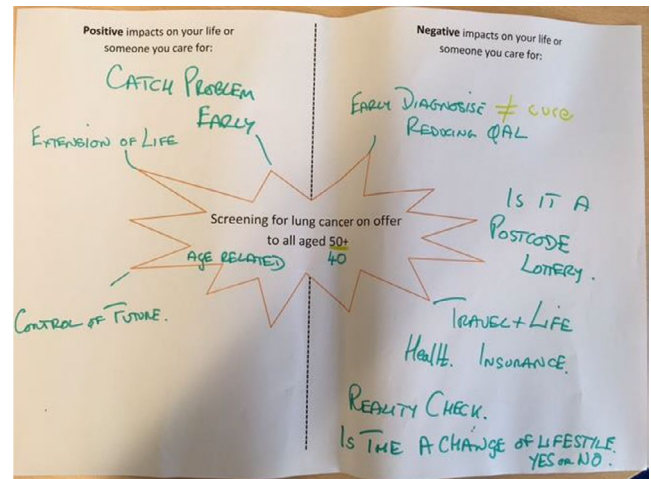 Positive impacts on your life or
someone you care for:
CATCH PROBLEM
EARLY
EXTENSION OF LIFE
CONTROL OF FUTURE.
Screening for lung cancer on offer
to all aged 50+
AGE RELATED 40
Negative impacts on your life or
someone you care for:
EARLY DIAGNOSISE ≠ cure
REDUCING QAL
IS IT A
POSTCODE
LOTTERY.
TRAVEL + LIFE
HeAlth. INSURANCE.
REALITY CHECK.
IS THE A CHANGE OF LIFESTYLE.
YES OR NO.